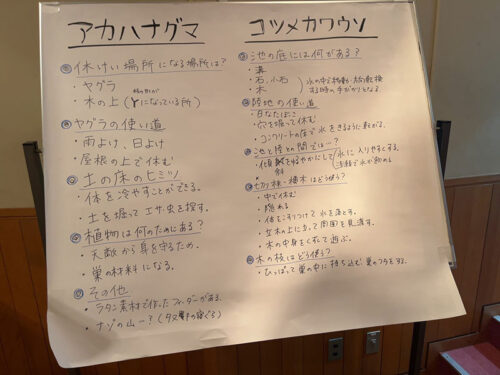 アカハナグマ
休けい場所になる場所は?
・ヤグラ
・木の上(Yになっている所)
ヤグラの使い道
・雨よけ、日よけ
・屋根の上で休む
土の床のヒミツ
・体を冷やすことができる。
・土を掘ってエサ・虫を探す。
植物は何のためにある?
・天敵から身を守るため.
・巣の材料になる。
その他
・ラタン素材で作ったフィーダーがある.
・ナゾの山ー?
コツメカワウソ
池の底には何がある?
・溝
・石、小石
・木
水の中で移動・方向転換
する時の手がかりとなる.
陸地の使い道
・日なたぼっこ
・穴を掘って休む
・コンクリートの床で水をきるように転がる.
池と陸との間では…?
・傾斜を緩やかにして
水に入りやすくする.
切り株・擬木はどう使う?
・中で休む
・隠れる
・体をこすりつけて水を落とす.
・立木の上に立って周囲を見渡す.
・木の中身をくずして遊ぶ.
木の枝はどう使う?
・ひっぱって巣の中に持ち込む!巣のフタをする.